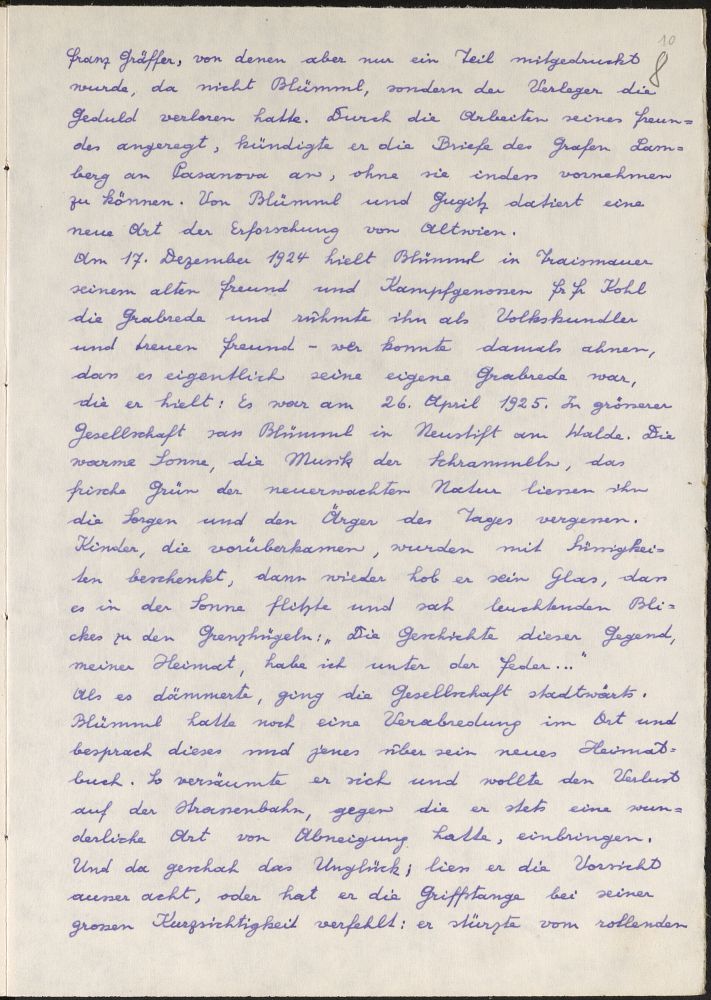 10
8
Franz Gräffer, von denen aber nur ein Teil mitgedruckt
wurde, da nicht Blümml, sondern der Verleger die
Geduld verloren hatte. Durch die Arbeiten seines Freun=
des angeregt, kündigte er die Briefe des Grafen Lam=
berg an Casanova an, ohne sie indess vornehmen
zu können. Von Blümml und Gugitz datiert eine
neue Art der Erforschung von Altwien.
Am 17. Dezember 1924 hielt Blümml in Traismauer
seinem alten Freund und Kampfgenossen Fr Fr Kohl
die Grabrede und rühmte ihn als Volkskundler
und treuen Freund - wer konnte damals ahnen,
dass es eigentlich seine eigene Grabrede war,
die er hielt: Es war am 26. April 1925. In grösserer
Gesellschaft sass Blümml in Neustift am Walde. Die
warme Sonne, die Musik der Schrammeln, das
frische Grün der neuerwachten Natur liessen ihn
die Sorgen und den Ärger des Tages vergessen.
Kinder, die vorüberkamen, wurden mit Süssigkei=
ten beschenkt, dann wieder hob er sein Glas, dass
es in der Sonne flitzte und sah leuchtenden Bli=
ckes zu den Grenzhügeln: „Die Geschichte dieser Gegend,
meiner Heimat, habe ich unter der Feder..."
Als es dämmerte, ging die Gesellschaft stadtwärts.
Blümml hatte noch eine Verabredung im Ort und
besprach dieses und jenes über sein neues Heimat=
buch. So versäumte er sich und wollte den Verlust
auf der Strassenbahn, gegen die er stets eine wun=
derliche Art von Abneigung hatte, einbringen.
Und da geschah das Unglück; liess er die Vorsicht
ausser acht, oder hat er die Griffstange bei seiner
grossen Kurzsichtigkeit verfehlt: er stürzte vom rollenden